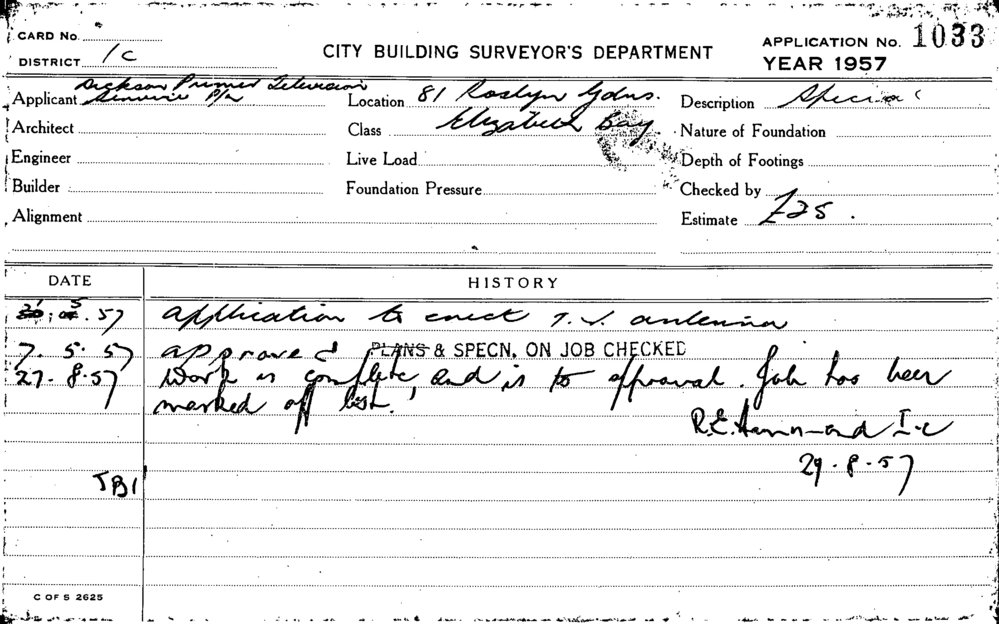 CARD No.
DISTRICT 1C
CITY BUILDING SURVEYOR'S DEPARTMENT
APPLICATION No. 1033
YEAR 1957
Dickson Primer Television
Applicant Services P/L
Location 81 Roslyn Gdns.
Description Special
Architect
Class Elizabeth Bay.
Nature of Foundation
Engineer
Live Load
Depth of Footings
Builder
Foundation Pressure
Checked by
Alignment
Estimate £25.
DATE HISTORY
5.57 application to erect T.V. antenna
7.5.57 approved PLANS & SPECN. ON JOB CHECKED
27.8.57 Work is complete, and is to approval. Job has been
marked off list.
R.E. Hammond I-c
29.8.57
JB1
C OF S 2625